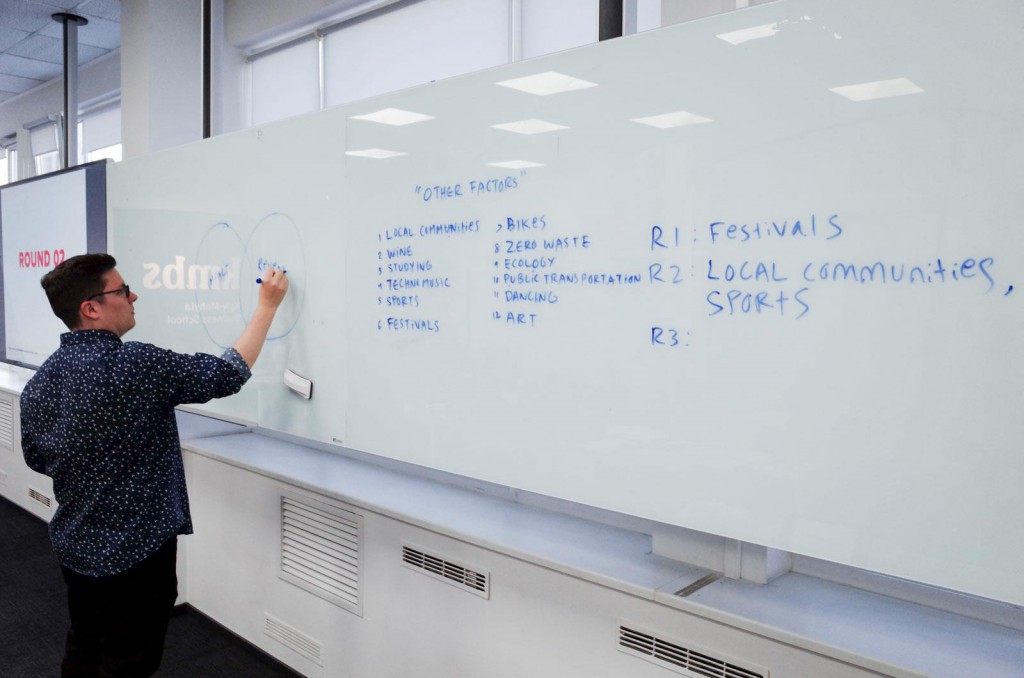 ROUND 02
kmbs
"OTHER FACTORS"
1 LOCAL COMMUNITIES
2 WINE
3 STUDYING
4 TECHNO MUSIC
5 SPORTS
6 FESTIVALS
7 BIKES
8 ZERO WASTE
9 ECOLOGY
10 PUBLIC TRANSPORTATION
11 DANCING
12 ART
R1: Festivals
R2: LOCAL communities,
SPORTS
R3: